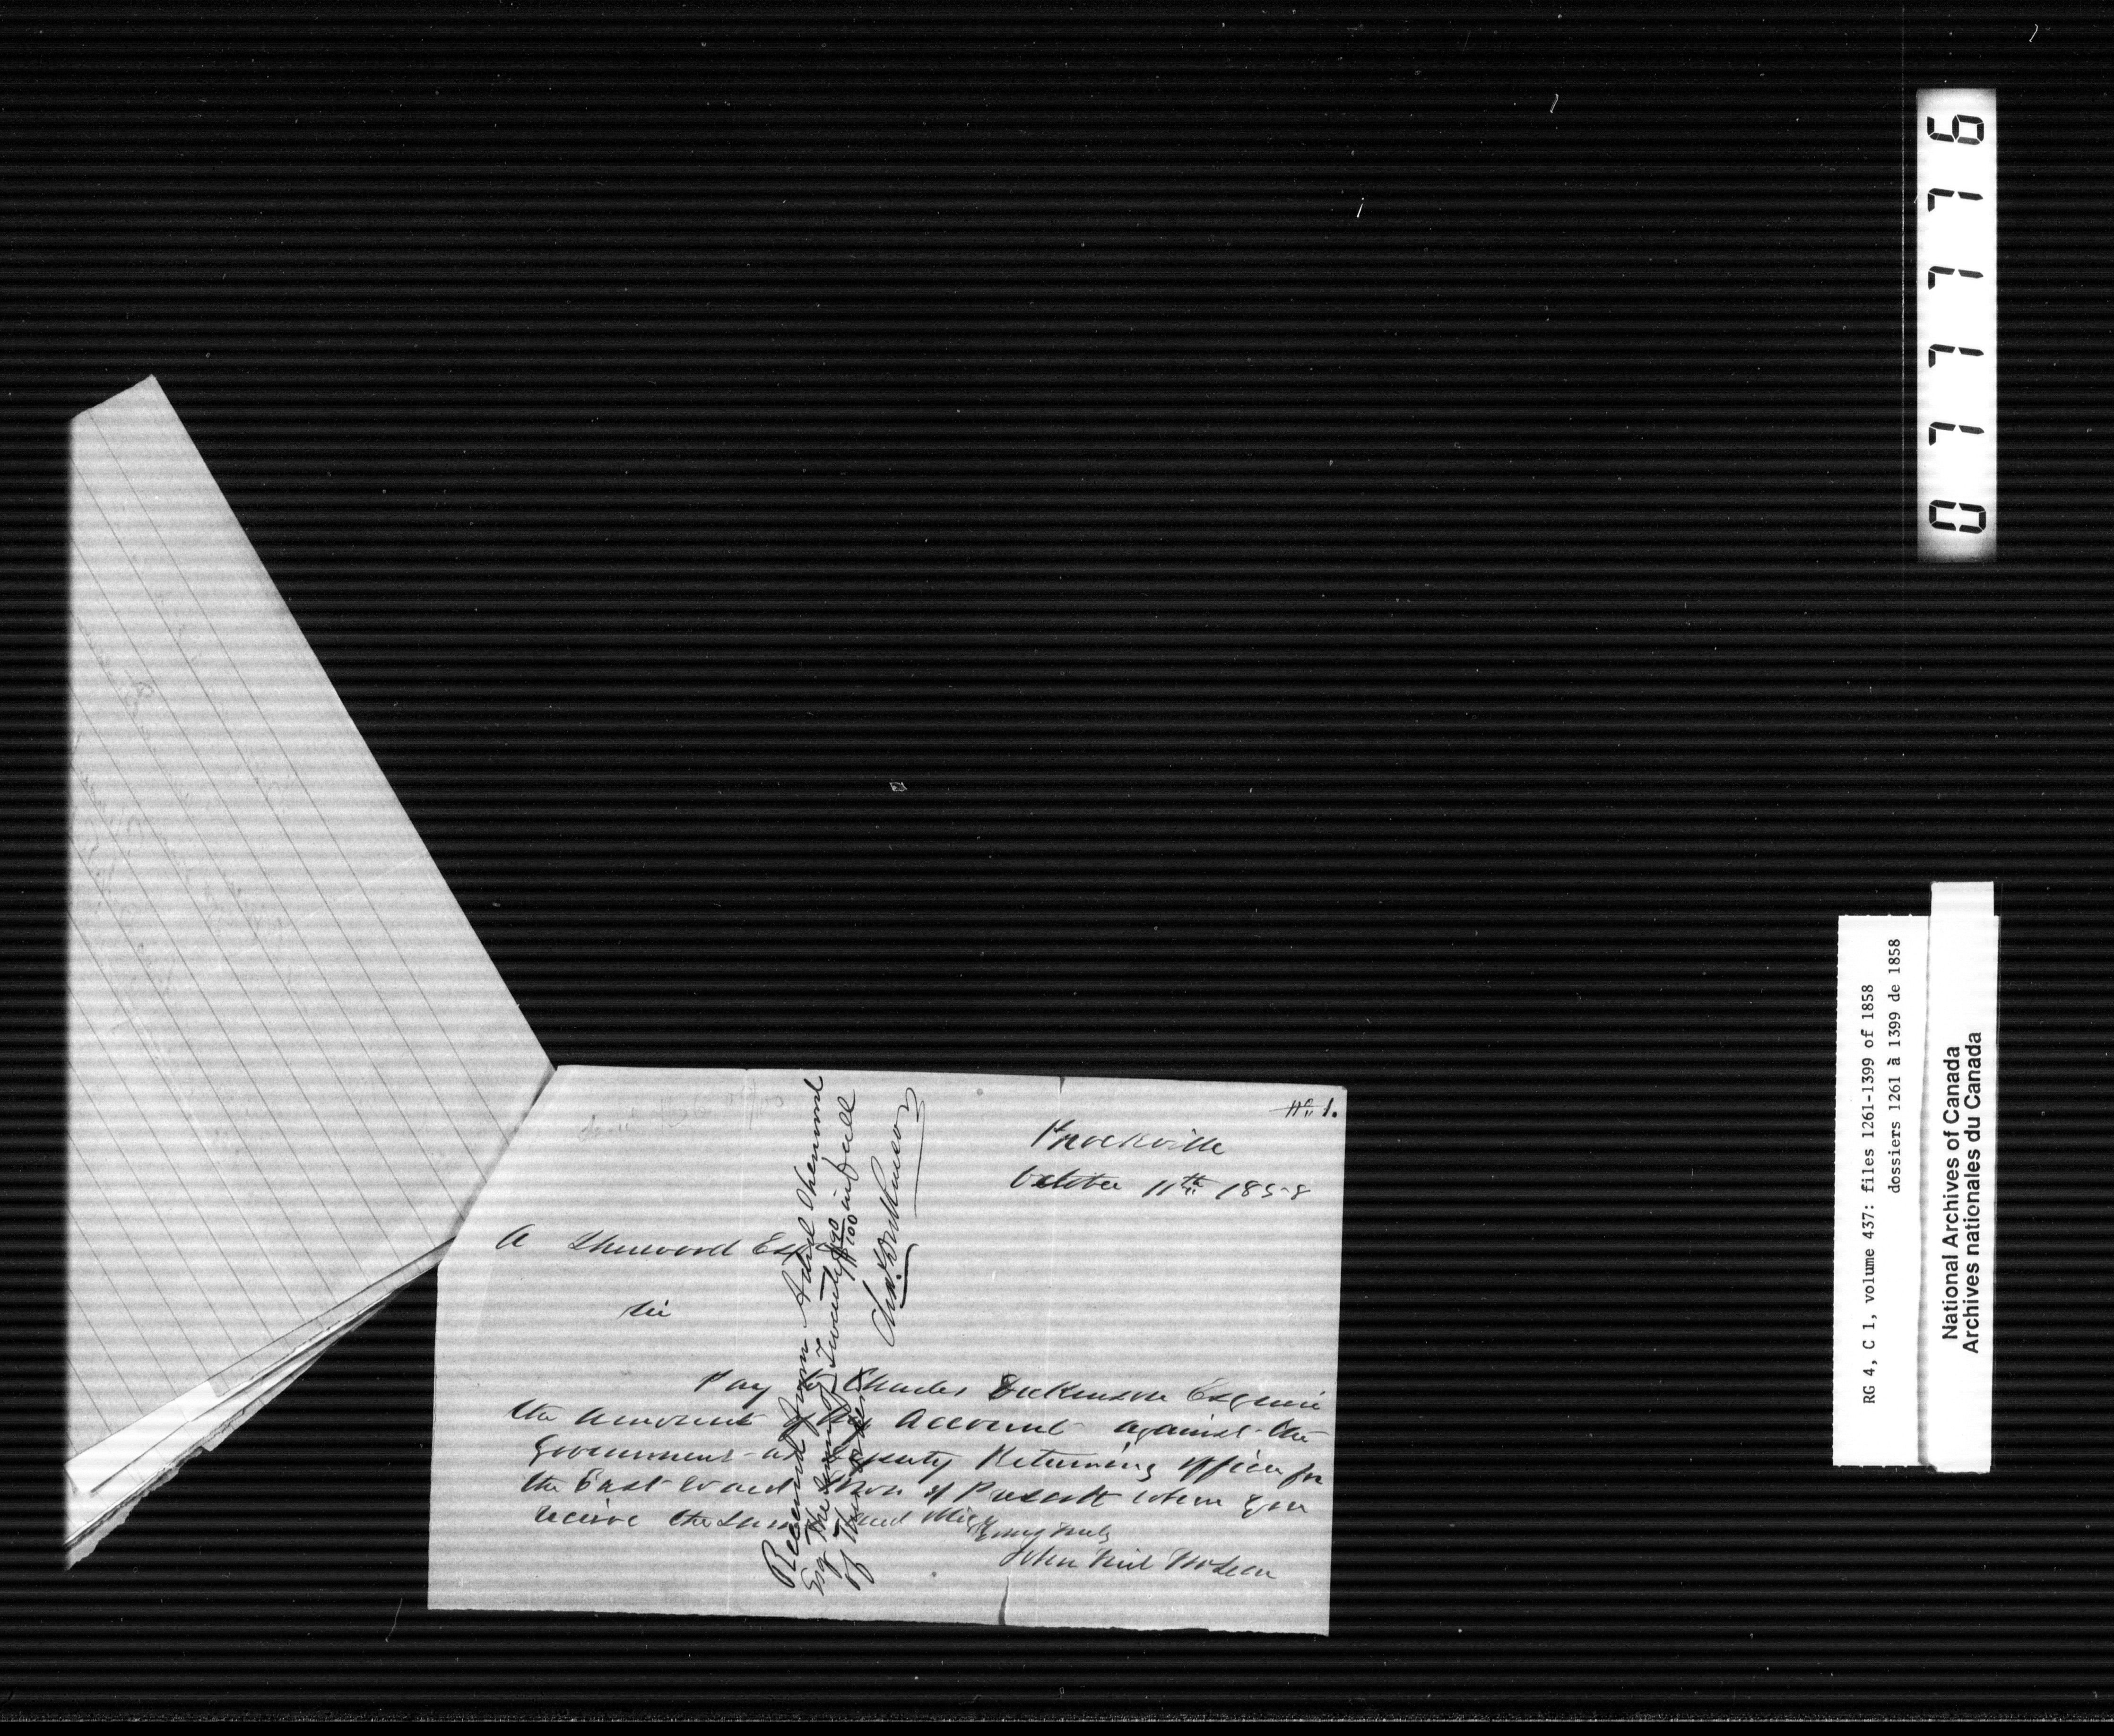 No. 1.
Brockville
October 11th 1858
A Sherwood Esq
Sir
Pay to Charles Dickenson Esquire
the amount of my Account against the
Government as Deputy Returning officer for
the East ward Town of Prescott when you
receive the same and oblige
Yours truly
John Neil McLean
Received from Adiel Sherwood
Esq the sum of Twenty 90/100
of this order in full
Chas. Dickenson
077776
RG 4, C 1, volume 437: files 1261-1399 of 1858
dossiers 1261 à 1399 de 1858
National Archives of Canada
Archives nationales du Canada